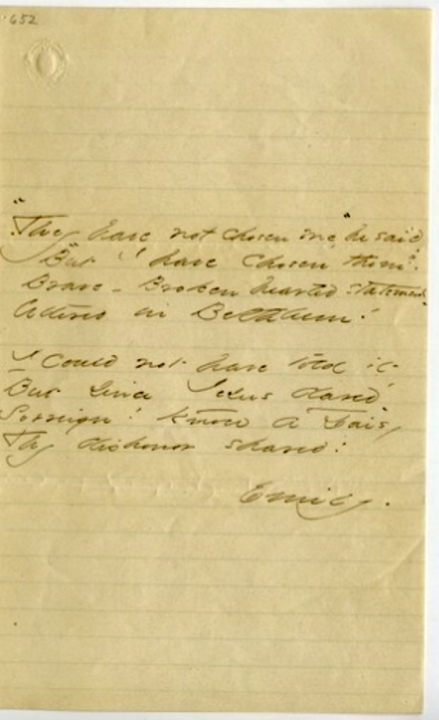 652
"They have not chosen me" he said
"But I have chosen them".
Brave - Broken hearted statement
Uttered in Bethlehem!
I could not have told it
But since Jesus dared
Sovreign! Know a Daisy
Thy dishonor shared!
Emily.